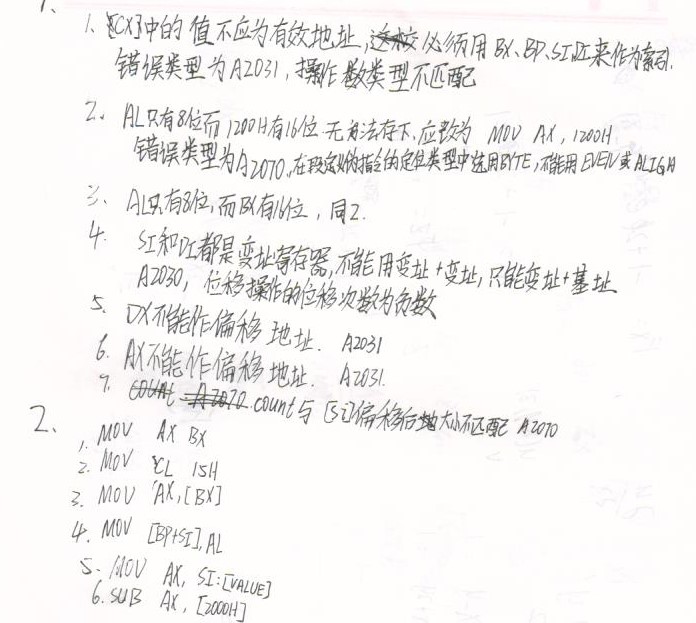 1、
1、[CX]中的值不应为有效地址,必须用BX、BP、SI、DI来作为索引.
错误类型为A2031,操作数类型不匹配
2、AL只有8位而1200H有16位.无法存下.应改为 MOV AX, 1200H.
错误类型为A2070,在段定义伪指令的定位类型中选用BYTE,不能用EVEN或ALIGN
3、AL只有8位,而BX有16位,同2.
4. SI和DI都是变址寄存器,不能用变址+变址,只能变址+基址
A2030,位移操作的位移次数为负数
5. DX不能作偏移地址. A2031
6. AX不能作偏移地址. A2031.
7. count与[SI]偏移后大小不匹配 A2070
2、
1, MOV AX BX
2. MOV CL 15H
3. MOV AX,[BX]
4. MOV [BP+SI],AL
5. MOV AX, SI:[VALUE]
6. SUB AX, [2000H]